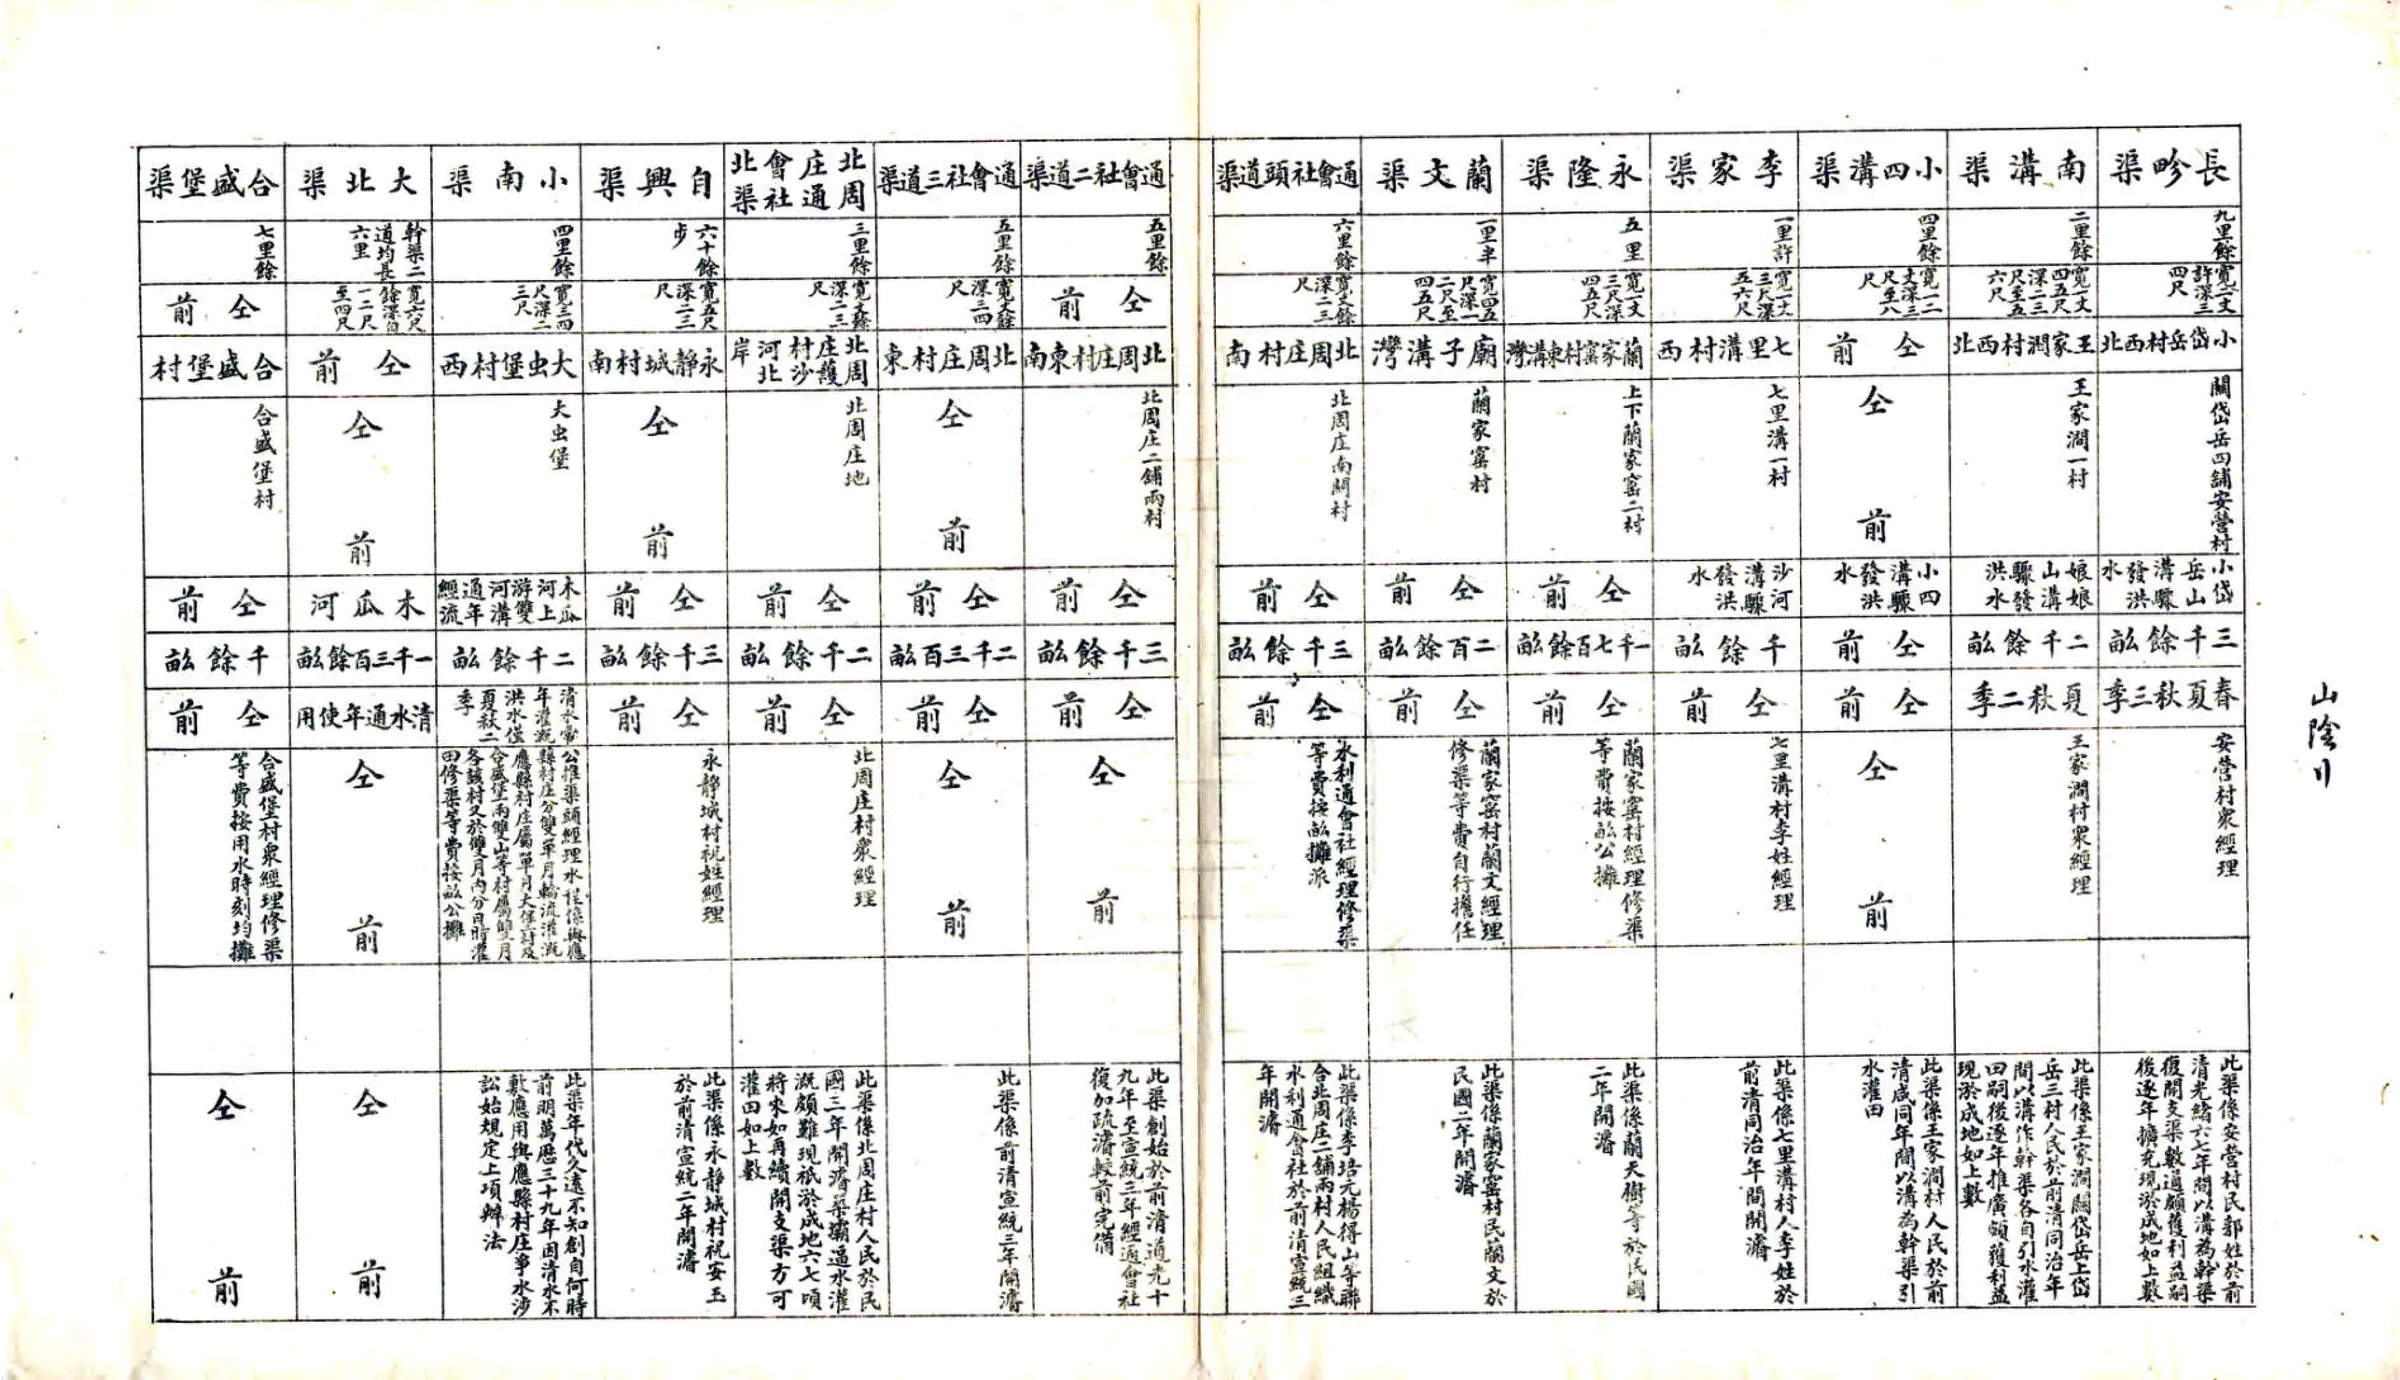 山陰
長畛渠
九里餘
寬二丈
許深三
四尺
小岱岳村西北
關岱岳四舖安營村
小岱
岳山
溝驟
發洪
水
三千餘畝
春夏秋三季
安營村衆經理
此渠係安營村民郭姓於前
清光緒六七年間以溝為幹渠
復開支渠數道頗獲利益嗣
後逐年擴充現淤成地如上數
南溝渠
二里餘
寬一丈
四五尺
深二三
尺至五
六尺
王家澗村西北
王家澗一村
娘娘
山溝
驟發
洪水
二千餘畝
夏秋二季
王家澗村衆經理
此渠係王家澗關岱岳上岱
岳三村人民於前清同治年
間以溝作幹渠各自引水灌
田嗣後逐年推廣頗獲利益
現淤成地如上數
小四溝渠
四里餘
寬一二
丈深三
尺至八
尺
仝前
仝前
小四
溝驟
發洪
水
仝前
仝前
仝前
此渠係王家澗村人民於前
清咸同年間以溝為幹渠引
水灌田
李家渠
一里許
寬一丈
三尺深
五六尺
七里溝村西
七里溝一村
沙河
溝驟
發洪
水
千餘畝
仝前
七里溝村李姓經理
此渠係七里溝村人李姓於
前清同治年間開濬
永隆渠
五里
寬一丈
三尺深
四五尺
蘭家窰村東溝灣
上下蘭家窰二村
仝前
一千七百餘畝
仝前
蘭家窰村經理修渠
等費按畝公攤
此渠係蘭天樹等於民國
二年開濬
蘭文渠
一里半
寬四五
尺深一
二尺至
四五尺
廟子溝灣
蘭家窰村
仝前
二百餘畝
仝前
蘭家窰村蘭文經理
修渠等費自行擔任
此渠係蘭家窰村民蘭文於
民國二年開濬
通會社頭道渠
六里餘
寬丈餘
深二三
尺
北周庄村南
北周庄南關村
仝前
三千餘畝
仝前
水利通會社經理修渠
等費按畝攤派
此渠係李培元楊得山等聯
合北周庄二舖兩村人民組織
水利通會社於前清宣統三
年開濬
通會社二道渠
五里餘
仝前
北周庄村東南
北周庄二舖兩村
仝前
三千餘畝
仝前
仝前
此渠創始於前清道光十
九年至宣統三年經通會社
復加疏濬較前完備
通會社三道渠
五里餘
寬丈餘
深三四
尺
北周庄村東
仝前
仝前
二千三百畝
仝前
仝前
此渠係前清宣統三年開濬
北周
庄通
會社
北渠
三里餘
寬丈餘
深二三
尺
北周
庄護
村沙
河北
岸
北周庄地
仝前
二千餘畝
仝前
北周庄村衆經理
此渠係北周庄村人民於民
國三年開濬築壩逼水灌
溉頗難現祇淤成地六七頃
將來如再續開支渠方可
灌田如上數
自興渠
六十餘
步
寬五尺
深二三
尺
永靜城村南
仝前
仝前
三千餘畝
仝前
永靜城村祝姓經理
此渠係永靜城村祝安玉
於前清宣統二年開濬
小南渠
四里餘
寬三四
尺深二
三尺
大虫堡村西
大虫堡
木瓜
河上
游雙
河溝
通年
經流
二千餘畝
清水常
年灌溉
洪水僅
夏秋二
季
公推渠頭經理水程係與應
縣村庄分雙單月輪流灌溉
應縣村庄屬單月大虫堡及
合盛堡兩雙山等村屬雙月
各該村又於雙月內分日時灌
田修渠等費按畝公攤
此渠年代久遠不知創自何時
前明萬曆三十九年因清水不
敷應用與應縣村庄爭水涉
訟始規定上項辦法
大北渠
幹渠二
道均長
六里
寬六尺
餘深自
一二尺
至四尺
仝前
仝前
木瓜河
一千三百餘畝
清水通年使用
仝前
仝前
合盛堡渠
七里餘
仝前
合盛堡村
合盛堡村
仝前
千餘畝
仝前
合盛堡村衆經理修渠
等費按用水時刻均攤
仝前